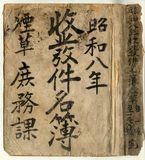 昭和八年
收發件名簿
煙草庶務課